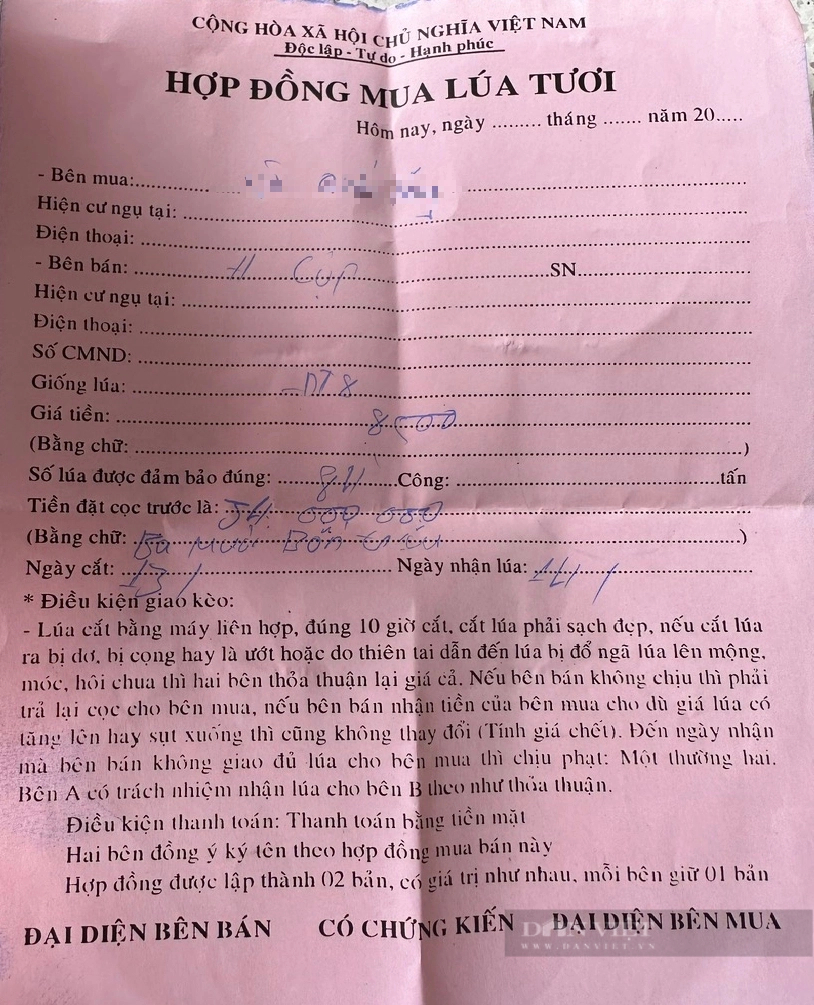 CỘNG HÒA XÃ HỘI CHỦ NGHĨA VIỆT NAM
Độc lập - Tự do - Hạnh phúc
HỢP ĐỒNG MUA LÚA TƯƠI
Hôm nay, ngày ......... tháng ....... năm 20.....
- Bên mua:
Hiện cư ngụ tại:
Điện thoại:
- Bên bán: SN
Hiện cư ngụ tại:
Điện thoại:
Số CMND:
Giống lúa: DT8
Giá tiền: 8000
(Bằng chữ: )
Số lúa được đảm bảo đúng: Công: tấn
Tiền đặt cọc trước là: 000 000
(Bằng chữ: Ba mươi Bốn triệu)
Ngày cắt: 13/ Ngày nhận lúa: 14/
* Điều kiện giao kèo:
- Lúa cắt bằng máy liên hợp, đúng 10 giờ cắt, cắt lúa phải sạch đẹp, nếu cắt lúa
ra bị dơ, bị cọng hay là ướt hoặc do thiên tai dẫn đến lúa bị đổ ngã lúa lên mộng,
móc, hôi chua thì hai bên thỏa thuận lại giá cả. Nếu bên bán không chịu thì phải
trả lại cọc cho bên mua, nếu bên bán nhận tiền của bên mua cho dù giá lúa có
tăng lên hay sụt xuống thì cũng không thay đổi (Tính giá chết). Đến ngày nhận
mà bên bán không giao đủ lúa cho bên mua thì chịu phạt: Một thường hai.
Bên A có trách nhiệm nhận lúa cho bên B theo như thỏa thuận.
Điều kiện thanh toán: Thanh toán bằng tiền mặt
Hai bên đồng ý ký tên theo hợp đồng mua bán này
Hợp đồng được lập thành 02 bản, có giá trị như nhau, mỗi bên giữ 01 bản
ĐẠI DIỆN BÊN BÁN CÓ CHỨNG KIẾN ĐẠI DIỆN BÊN MUA
DÂN VIỆT
WWW.DANVIET.VN